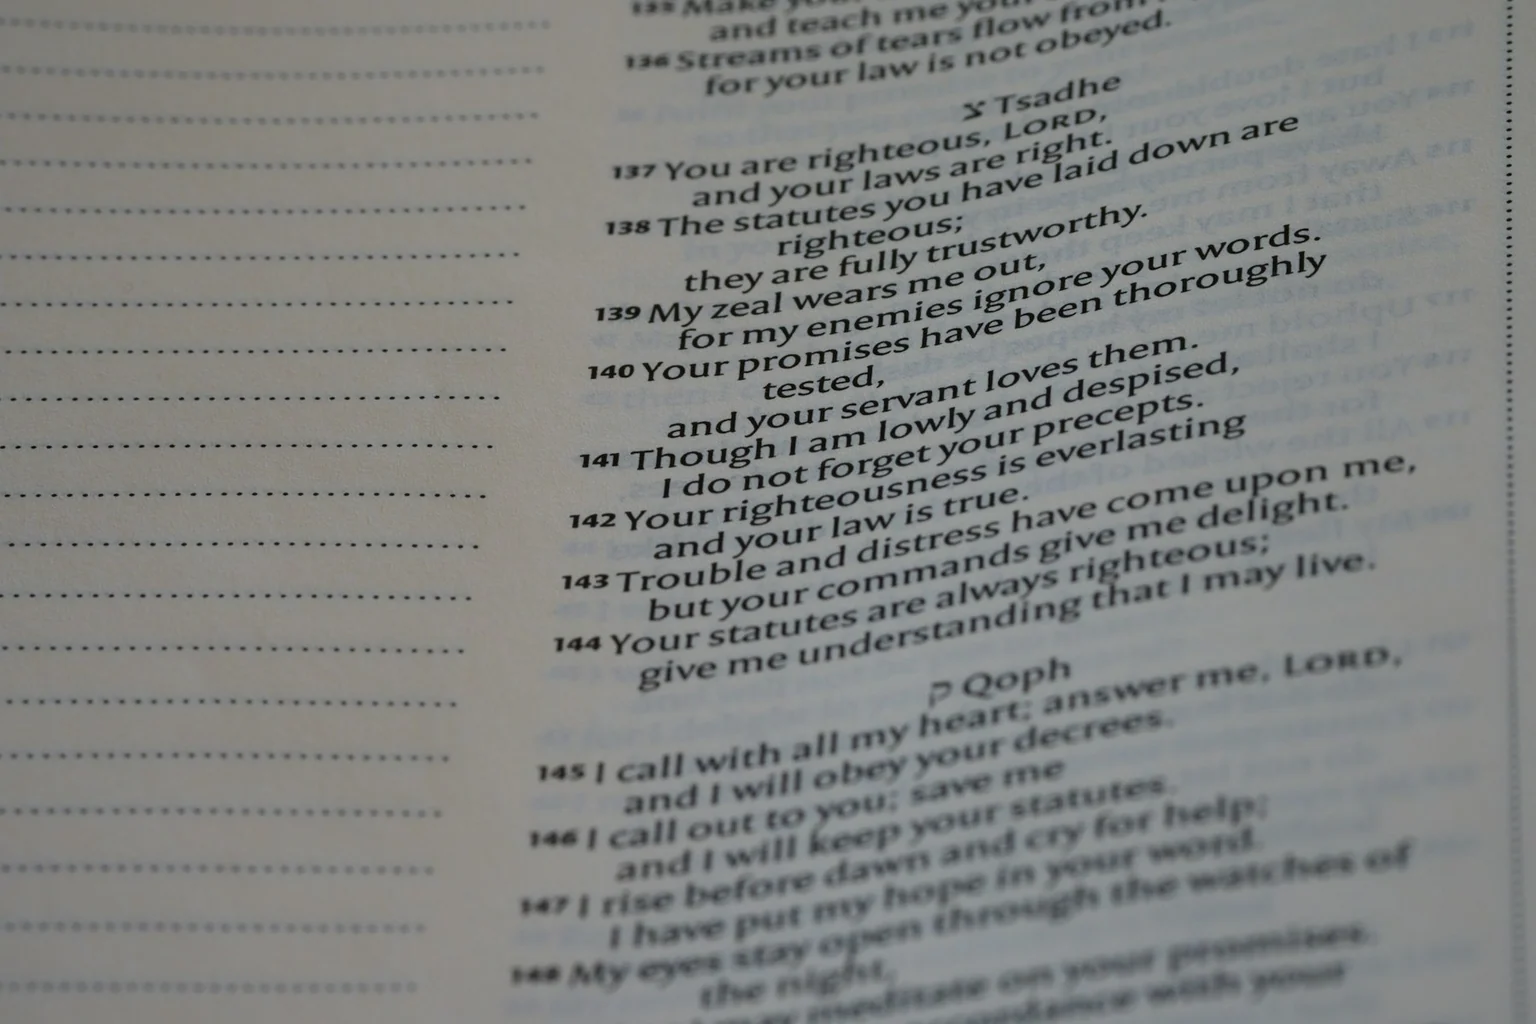 135 Make your
and teach me your
136 Streams of tears flow from
for your law is not obeyed.
צ Tsadhe
137 You are righteous, LORD,
and your laws are right.
138 The statutes you have laid down are
righteous;
they are fully trustworthy.
139 My zeal wears me out,
for my enemies ignore your words.
140 Your promises have been thoroughly
tested,
and your servant loves them.
141 Though I am lowly and despised,
I do not forget your precepts.
142 Your righteousness is everlasting
and your law is true.
143 Trouble and distress have come upon me,
but your commands give me delight.
144 Your statutes are always righteous;
give me understanding that I may live.
ק Qoph
145 I call with all my heart; answer me, LORD,
and I will obey your decrees.
146 I call out to you; save me
and I will keep your statutes.
147 I rise before dawn and cry for help;
I have put my hope in your word.
148 My eyes stay open through the watches of
the night,
may meditate on your promises.
with your